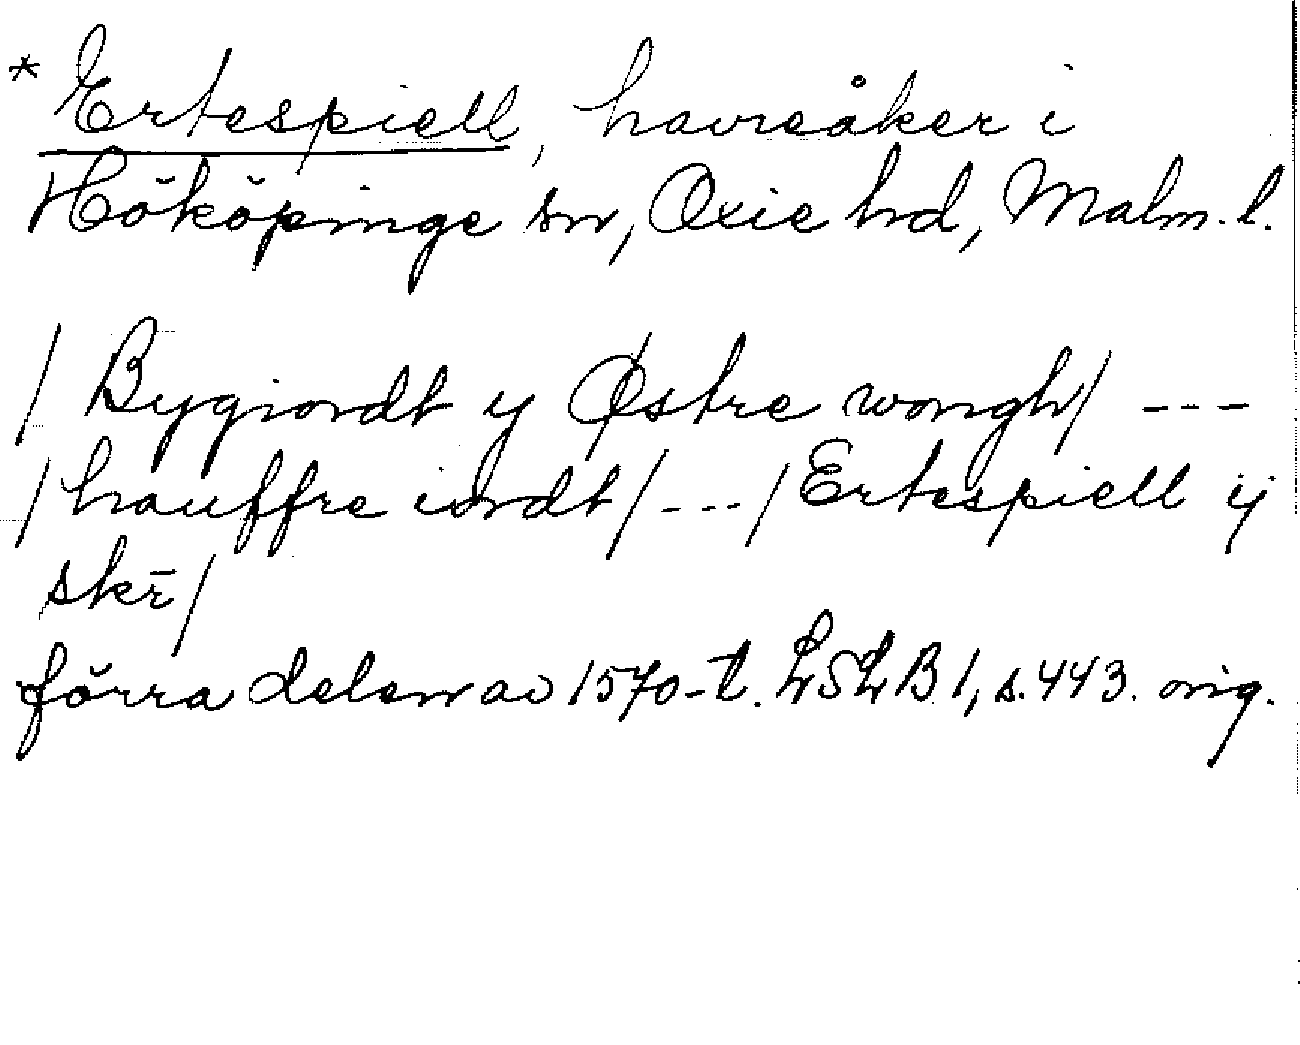 * Ertespiell, havreåker i
Hököpinge sn, Oxie hd, Malm. l.
/ Bygiordt y Østre wongh / ---
/ hauffre iordt / --- / Ertespiell ij
skr̄ /
förra delen av 1570-t. LSLB 1, s. 443. orig.